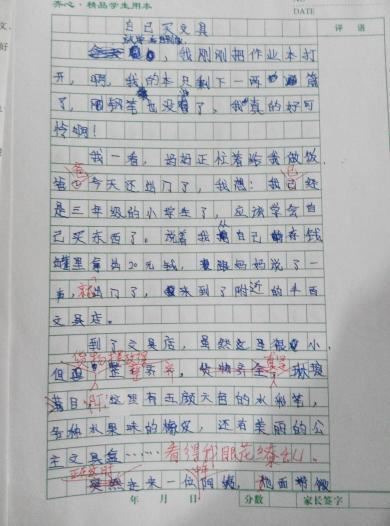 齐心·精品学生用本
DATE
评语
自己买文具
我刚刚把作业本打
开,啊,我的本只剩下一两篇
了,钢笔也没了,我真的好可
怜啊!
我一看,妈妈正忙着给我做饭,
爸爸今天还出门了,我想:我已经
是三年级的小学生了,应该学会自
己买东西了。说着我从自己存钱
罐里拿出20元钱,跟妈妈说了一
声,就出门了,来到了附近的
文具店。
到了文具店,虽然这里很小,
但整整齐齐,货物齐全,琳琅
满目,这里有五颜六色的水彩笔,
各种水果味的橡皮,还有美丽的公
主文具盒……看得我眼花缭乱。
突然走来一位阿姨,面带微
年 月 日
分数
家长签字